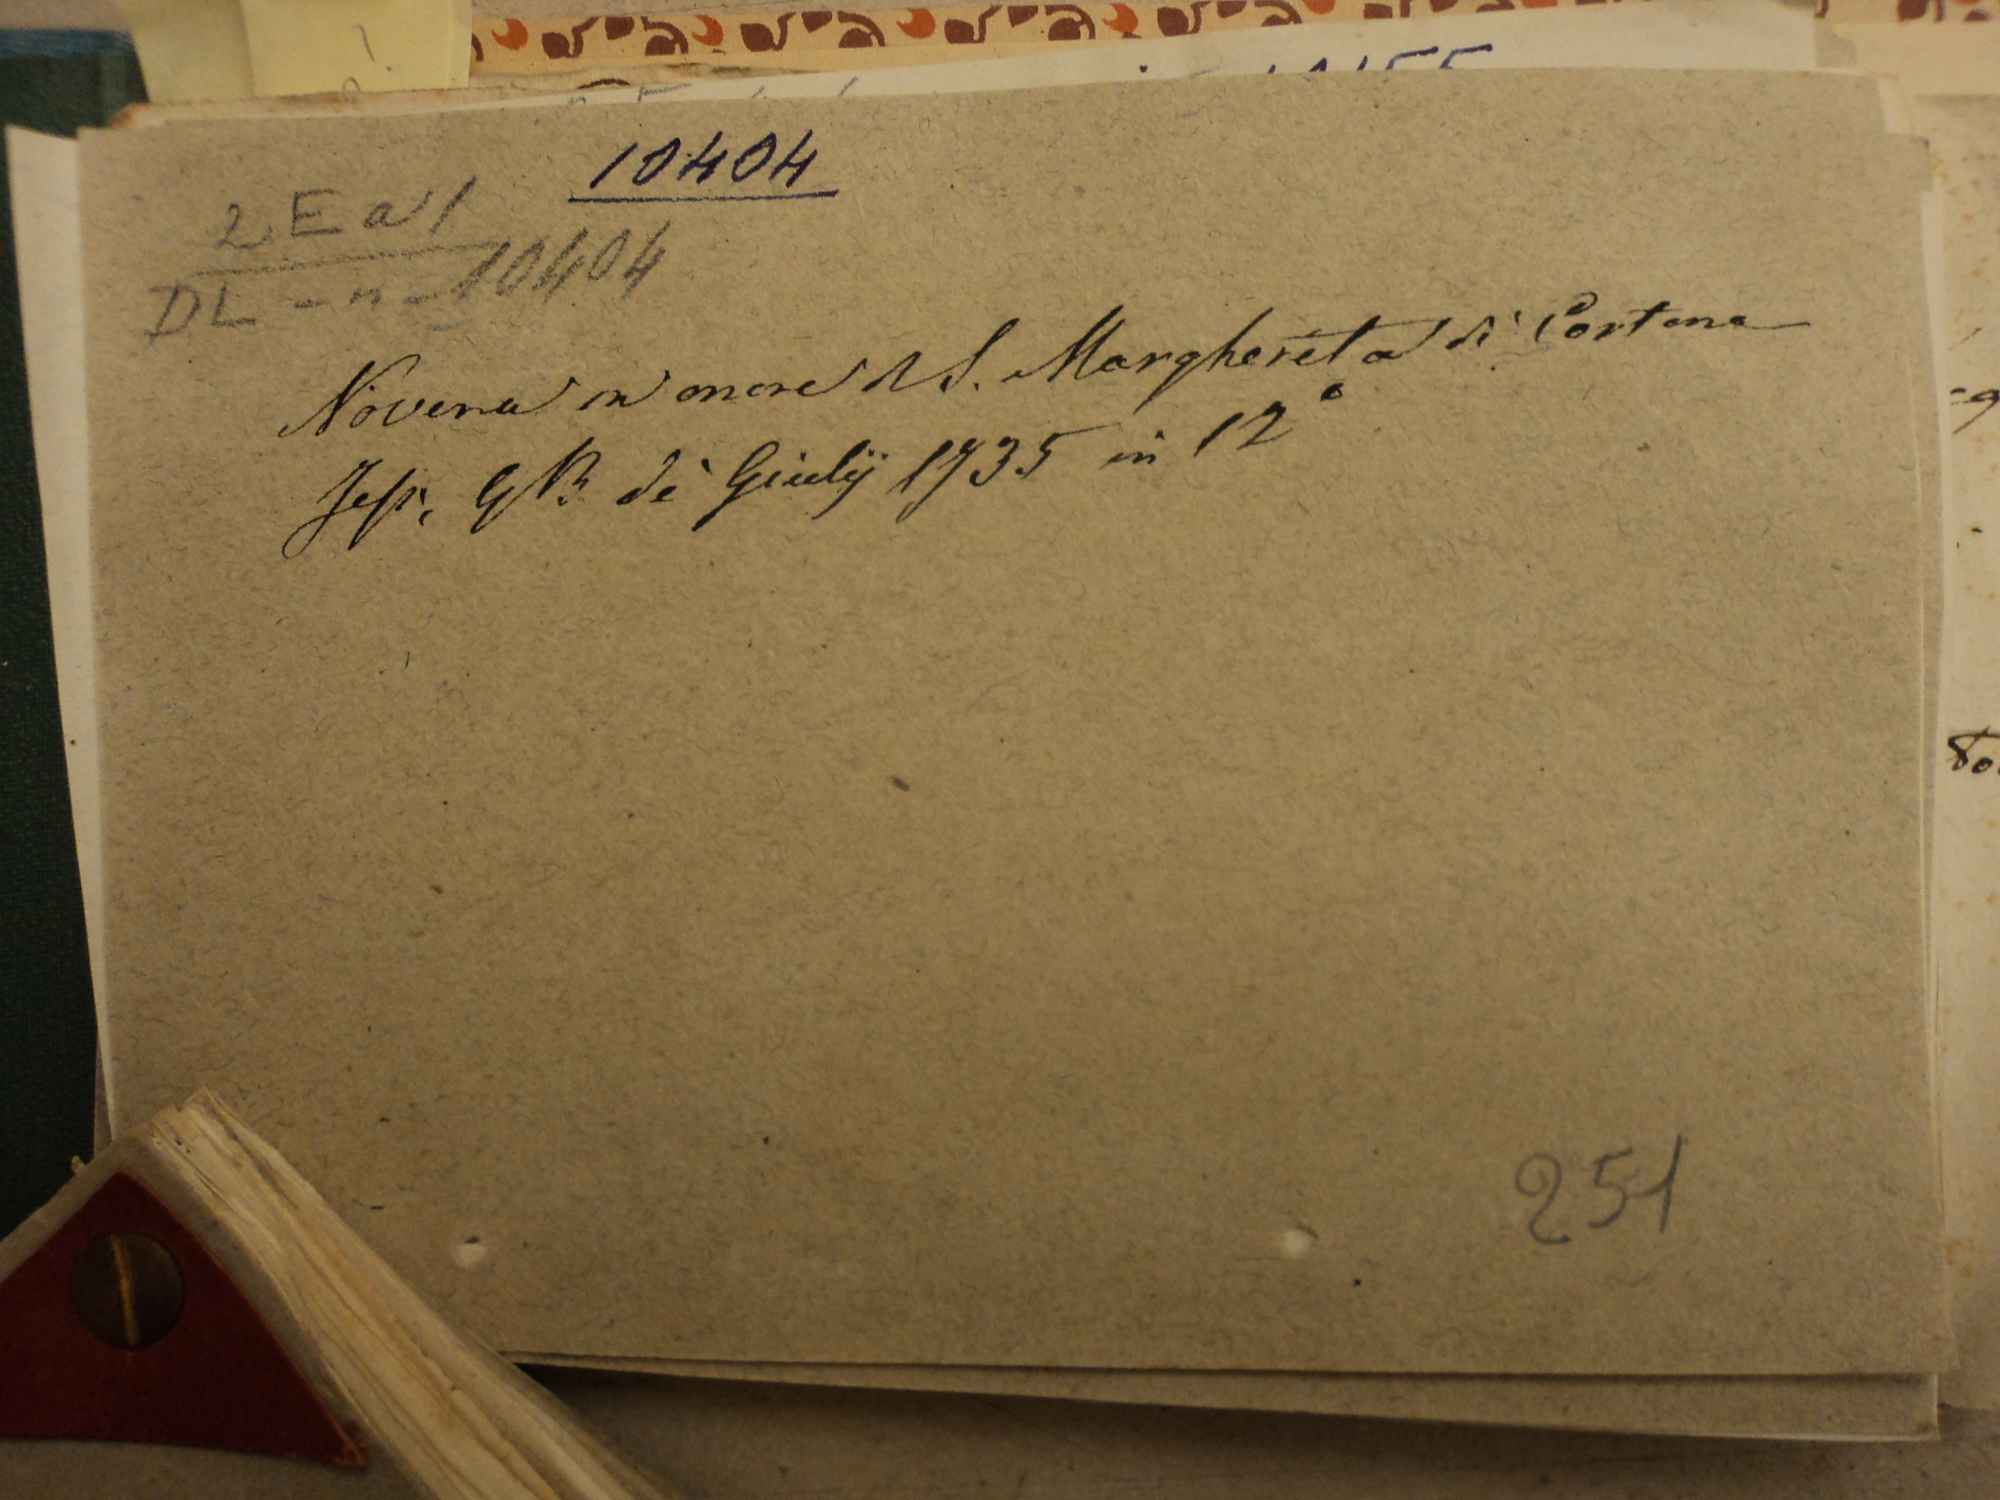 10404
2 E a 1
DL - n - 10404
Novena in onore di S. Margherita di Cortona
Jesi, G B de Giulij 1735 in 12°
251